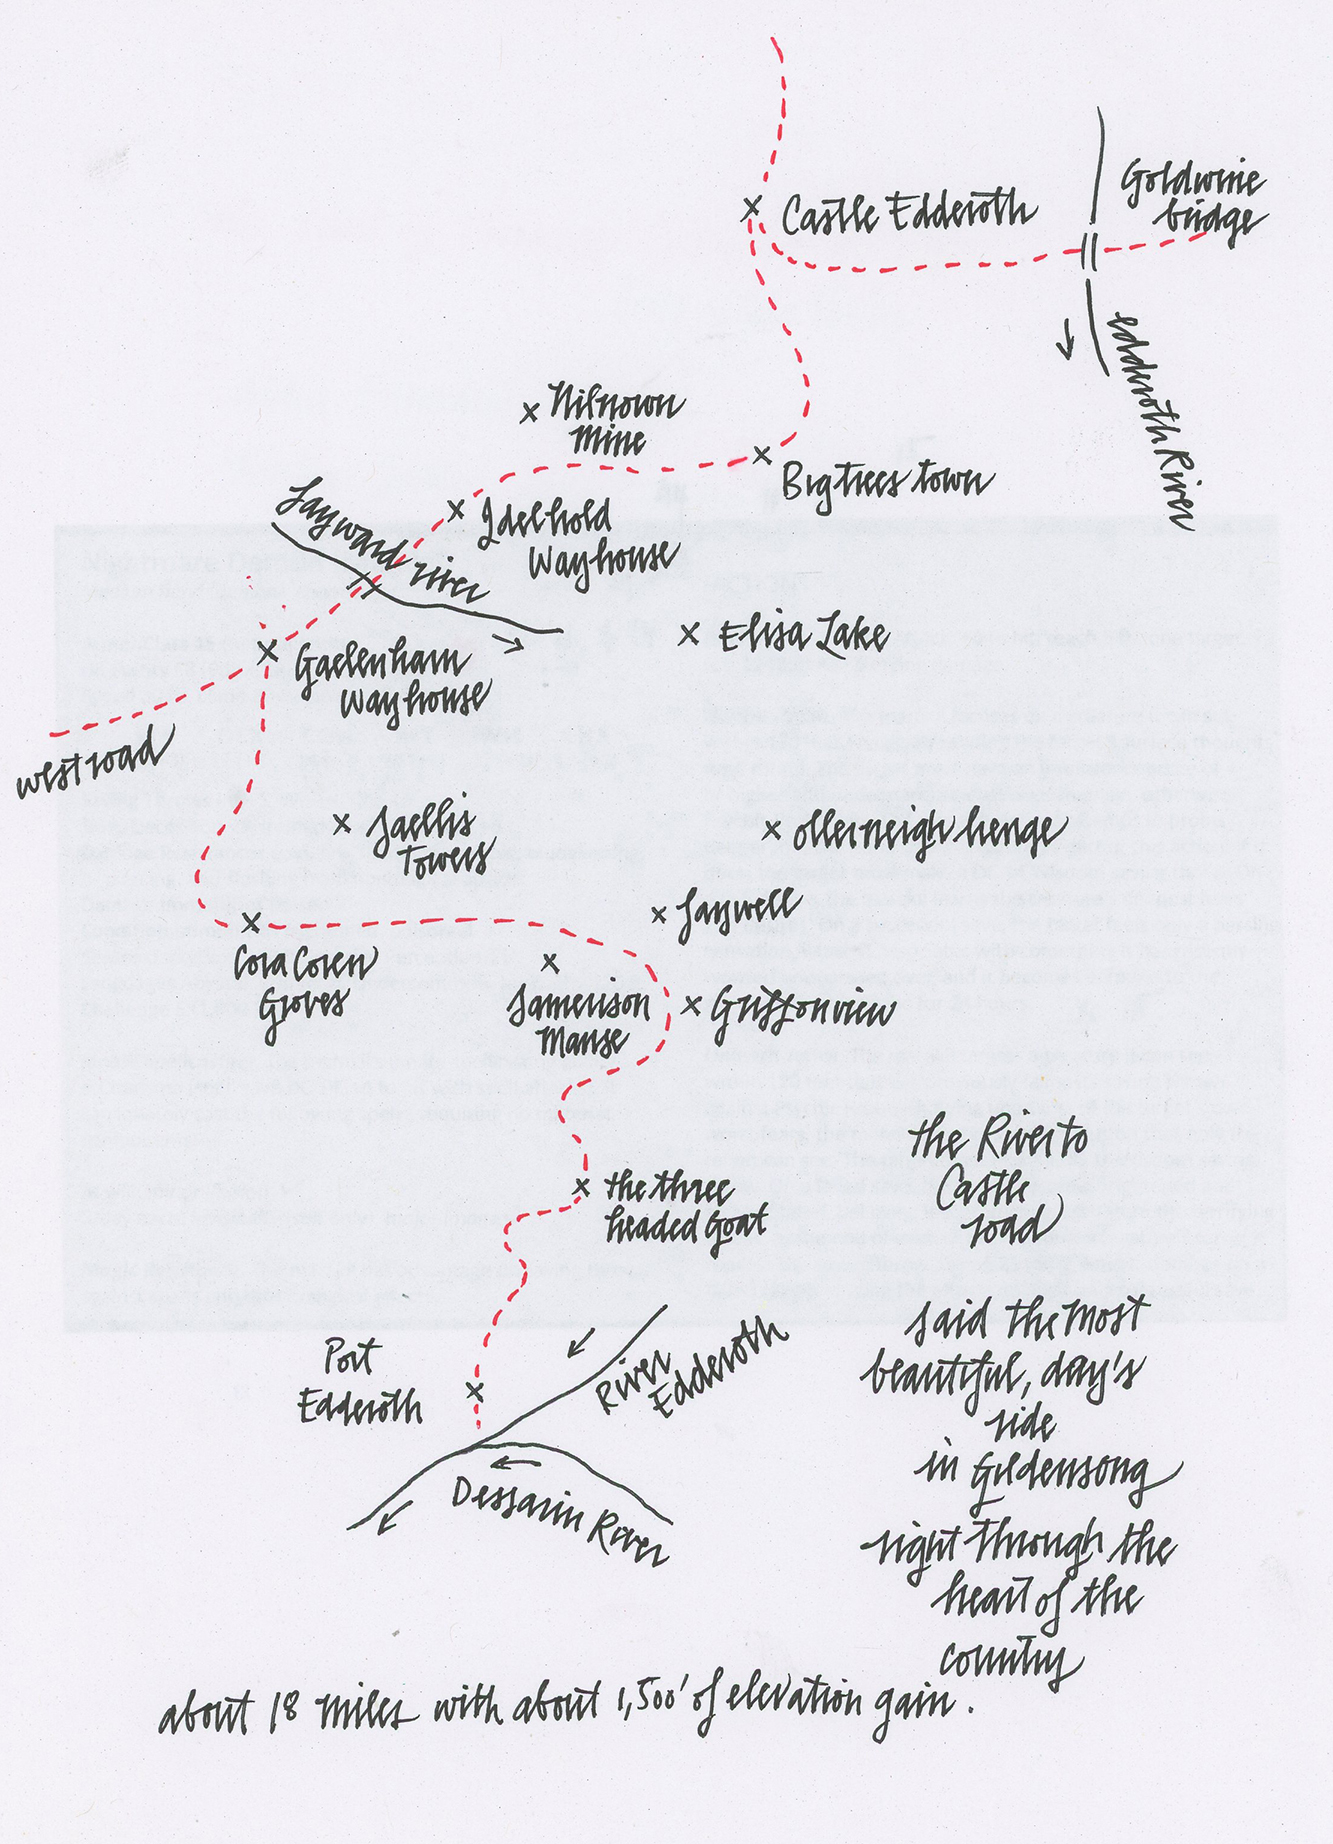 Castle Edderoth
Goldwine
bridge
edderoth River
Nilnown
Mine
Bigtrees town
Idelhold
Wayhouse
Jayward river
Elisa Lake
Gaelenham
Wayhouse
west road
Jaellis
Towers
ollerneigh henge
Jaywell
Cora Coren
Groves
Jamerison
Manse
Griffonview
the River to
Castle
road
the three
headed Goat
said the most
beautiful, day's
ride
in Gildensong
right through the
heart of the
country
Port
Edderoth
River
Edderoth
Dessarin River
about 18 miles with about 1,500' of elevation gain.